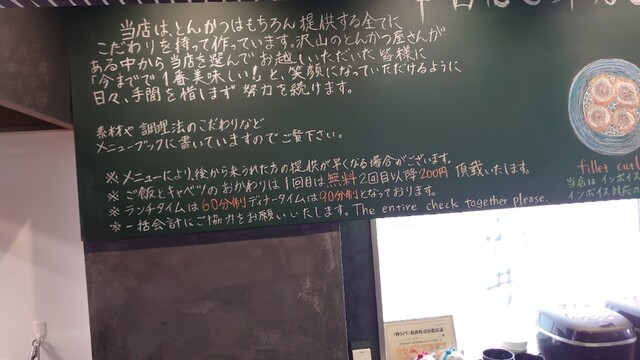 当店は、とんかつはもちろん提供する全てに
こだわりを持って作っています。沢山のとんかつ屋さんが
ある中から当店を選んでお越しいただいた皆様に
「今までで1番美味しい!」と、笑顔になっていただけるように
日々、手間を惜しまず努力を続けます。
素材や調理法のこだわりなど
メニューブックに書いていますのでご覧下さい。
※メニューにより、後から来られた方の提供が早くなる場合がございます。
※ご飯とキャベツのおかわりは1回目は無料2回目以降200円頂戴いたします。
※ランチタイムは60分制ディナータイムは90分制となっております。
※一括会計にご協力をお願いいたします。The entire check together please.
fillet cutl
当店はインボイス
インボイス対応